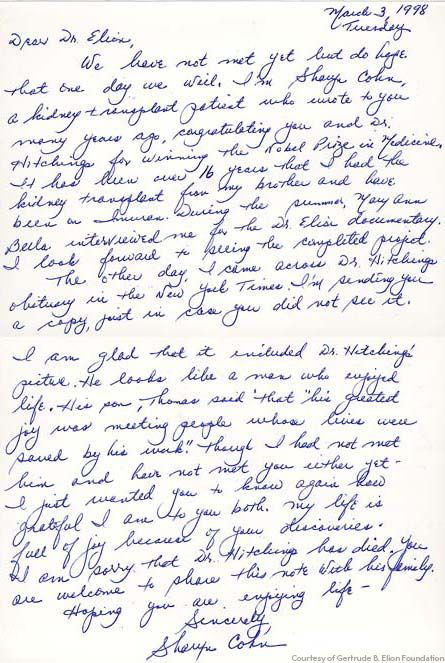 March 3, 1998
Tuesday
Dear Dr. Elion,
We have not met yet but do hope
that one day we will. I'm Sharyn Cohn,
a kidney transplant patient who wrote to you
many years ago, congratulating you and Dr.
Hitchings for winning the Nobel Prize in Medicine.
It has been over 16 years that I had the
kidney transplant from my brother and have
been on Imuran. During the summer, Mary Ann
Bella interviewed me for the Dr. Elion documentary.
I look forward to seeing the completed project.
The other day, I came across Dr. Hitchings
obituary in the New York Times. I'm sending you
a copy, just in case you did not see it.
I am glad that it included Dr. Hitching's
picture. He looks like a man who enjoyed
life. His son, Thomas said "that "his greatest
joy was meeting people whose lives were
saved by his work." Though I had not met
him and have not met you either yet -
I just wanted you to know again how
grateful I am to you both. My life is
full of joy because of your discoveries.
I am sorry that Dr. Hitchings has died. You
are welcome to share this note with his family.
Hoping you are enjoying life -
Sincerely,
Sharyn Cohn
Courtesy of Gertrude B. Elion Foundation